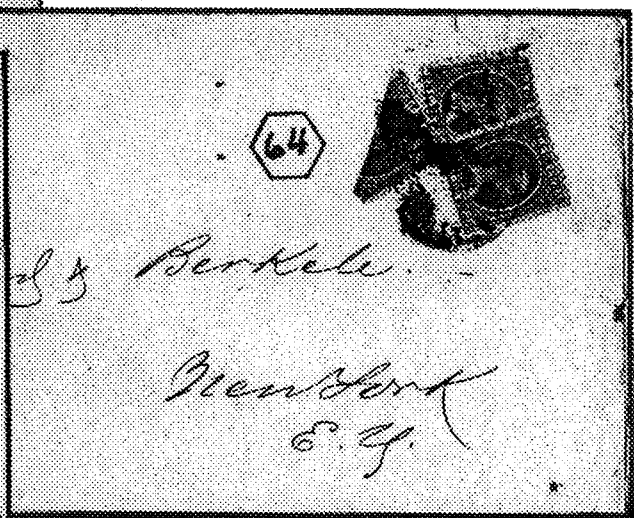 64
Berkele.
New York
E. Y.